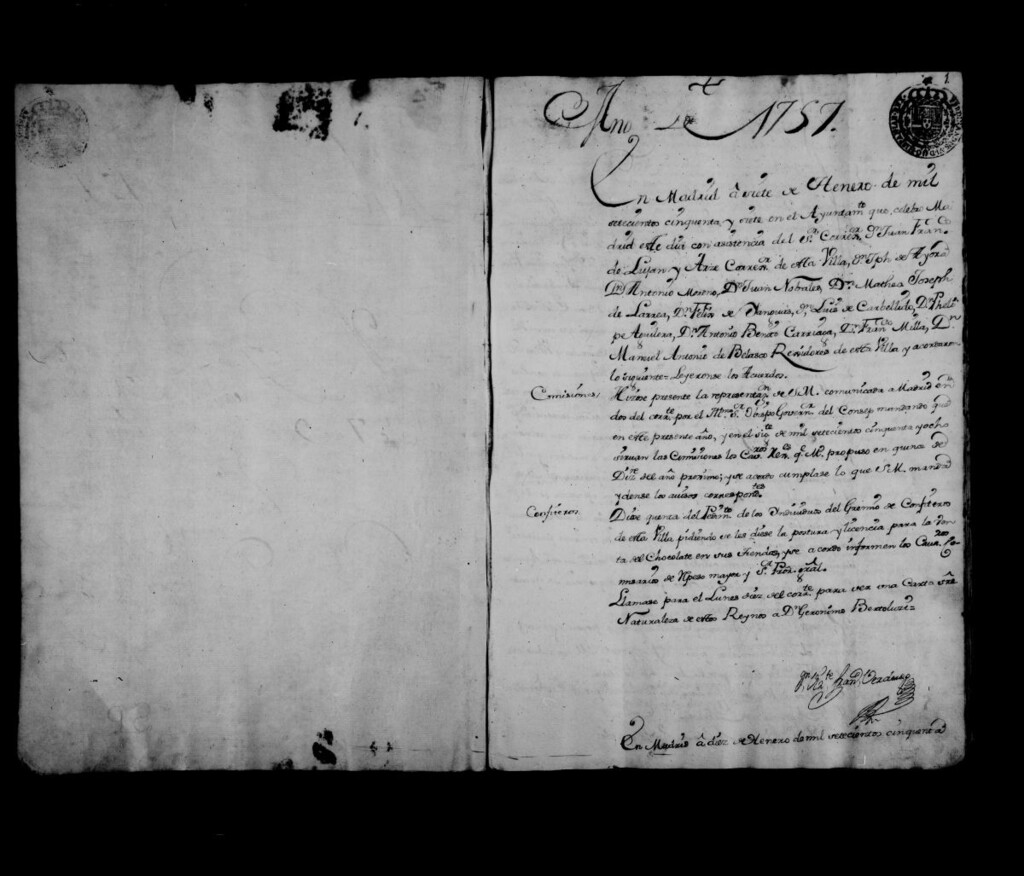 1
Año de 1757.
En Madrid â siete de Henero de mil
setecientos cinquenta, y siete en el Ayuntam.to que celebro Ma
drid este dia con asistencia del S.r Correx.or D.n Juan Fran.co
de Lujan y Arze Correx.or de esta Villa, D.n Jph de
D.n Antonio Moreno, D.n Juan Nobales, D.n Mathea Joseph
de Larrea, D.n Felix de D.n Luis de D.n Pheli
pe Aguilera, D.n Antonio Benito Carriaga, D.n Fran.co Milla, D.n
Manuel Antonio de Belasco Rexidores de esta Villa y acordaron
lo siguiente= Leyeronse los Acuerdos.
Comisiones Hizose presente la representaz.on de S.M. comunicada a Madrid en
dos del corr.te por el Ill.mo S.r Obispo Governa.r del Consejo mandando que
en este presente año, y en el sig.te de mil setecientos cinquenta y ocho
sirvan las Comisiones los Cav.ros Rex.es q.e M. propuso en quince de
Diz.re del año proximo; y se acordo cumplase lo que S.M. manda
y dense los avisos correspond.tes
Confiteros Diose quenta del Pedim.to de los Individuos del Gremio de Confiteros
de esta Villa pidiendo se les diese la postura y licencia para la ven
ta del Chocolate en sus tiendas, y se acordo informen los Cav.ros Co
misarios de Rpeso mayor y S.r Pror. gral.
Llamase para el Lunes diez del corr.te para ver una Carta sre
Naturaleza de estos Reynos a D.n Geronimo Bertoluzi=
En Madrid â diez de Henero de mil setecientos cinquenta